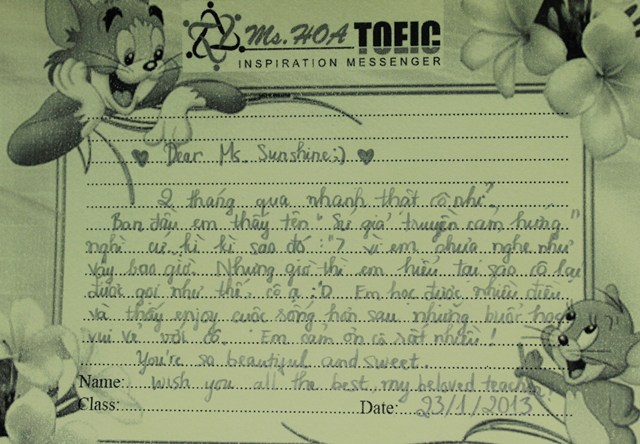 Ms. HOA TOEIC
INSPIRATION MESSENGER
Dear Ms. Sunshine:)
2 tháng qua nhanh thật cô nhỉ.
Ban đầu em thấy tên "Sứ giả truyền cảm hứng"
nghe cứ kì kì sao đó :"7 vì em chưa nghe như
vậy bao giờ. Nhưng giờ thì em hiểu tại sao cô lại
được gọi như thế, cô ạ :D Em học được nhiều điều
và thấy enjoy cuộc sống hơn sau những buổi học
vui vẻ với cô. Em cảm ơn cô rất nhiều!
You're so beautiful and sweet.
Name: Wish you all the best, my beloved teacher!
Class: Date: 23/1/2013